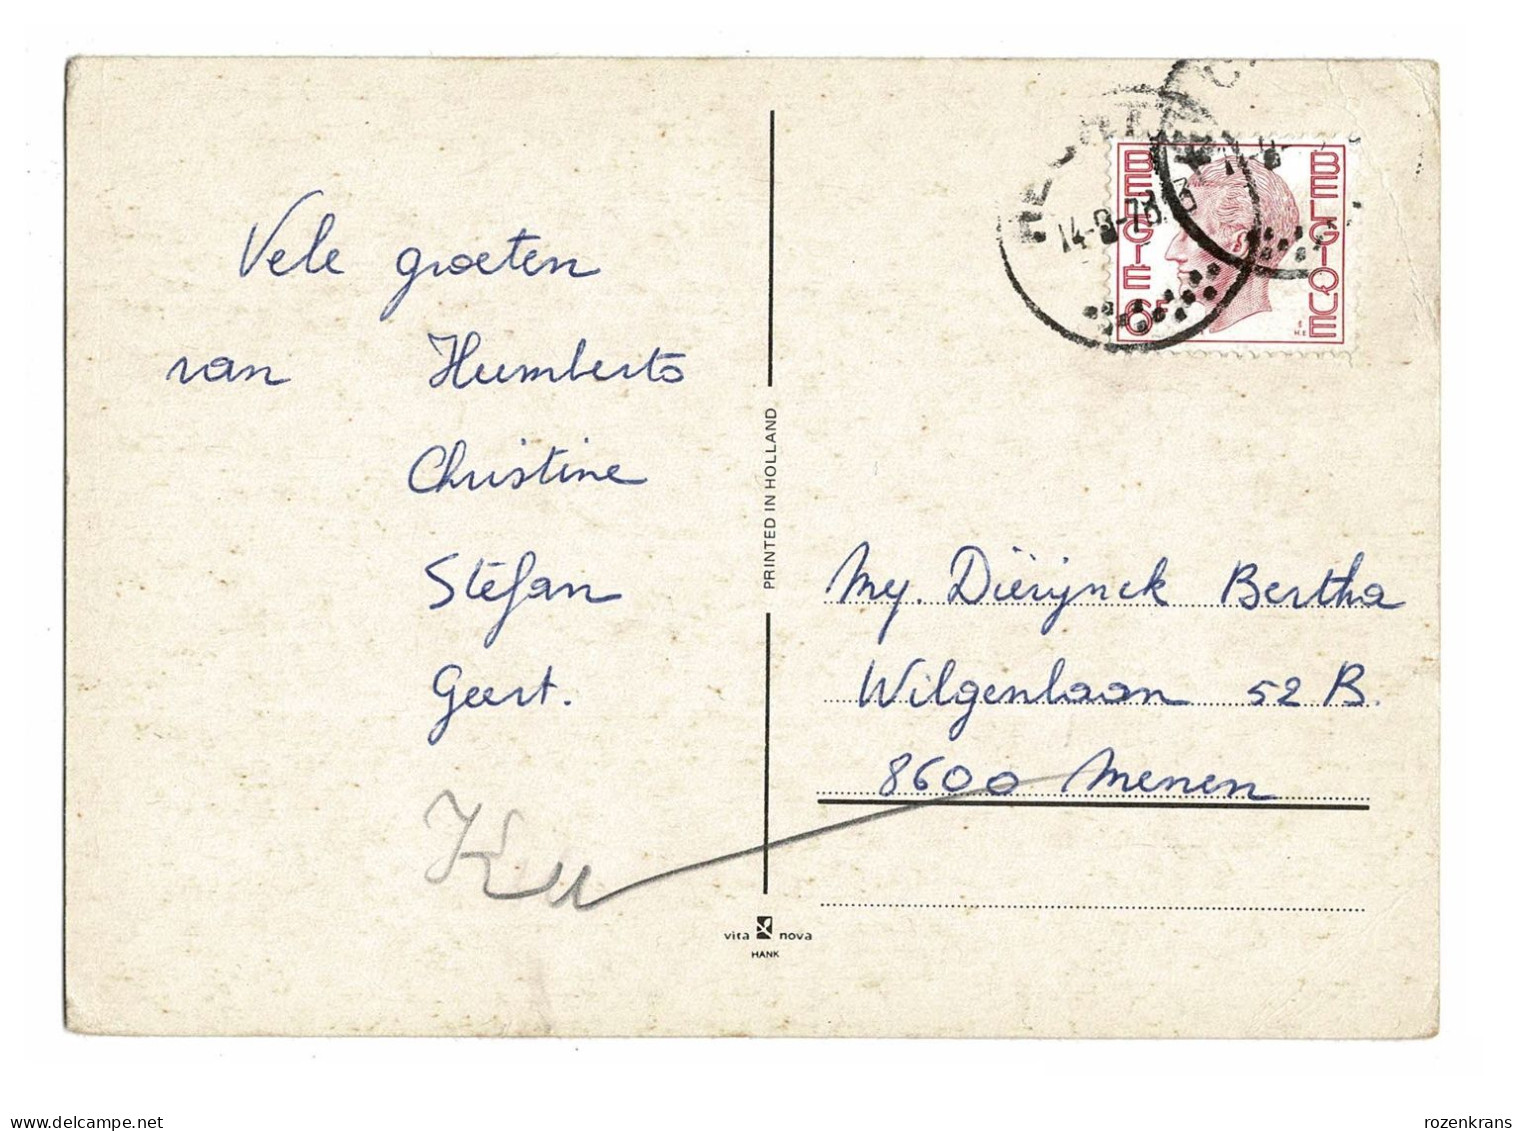 Vele groeten
van Humberto
Christine
Stefan
Geert.
PRINTED IN HOLLAND
vita nova
HANK
14-8-78
BELGIË 6F
BELGIQUE
My. Diërijnck Bertha
Wilgenlaan 52 B.
8600 Menen
delcampe.net
rozenkrans